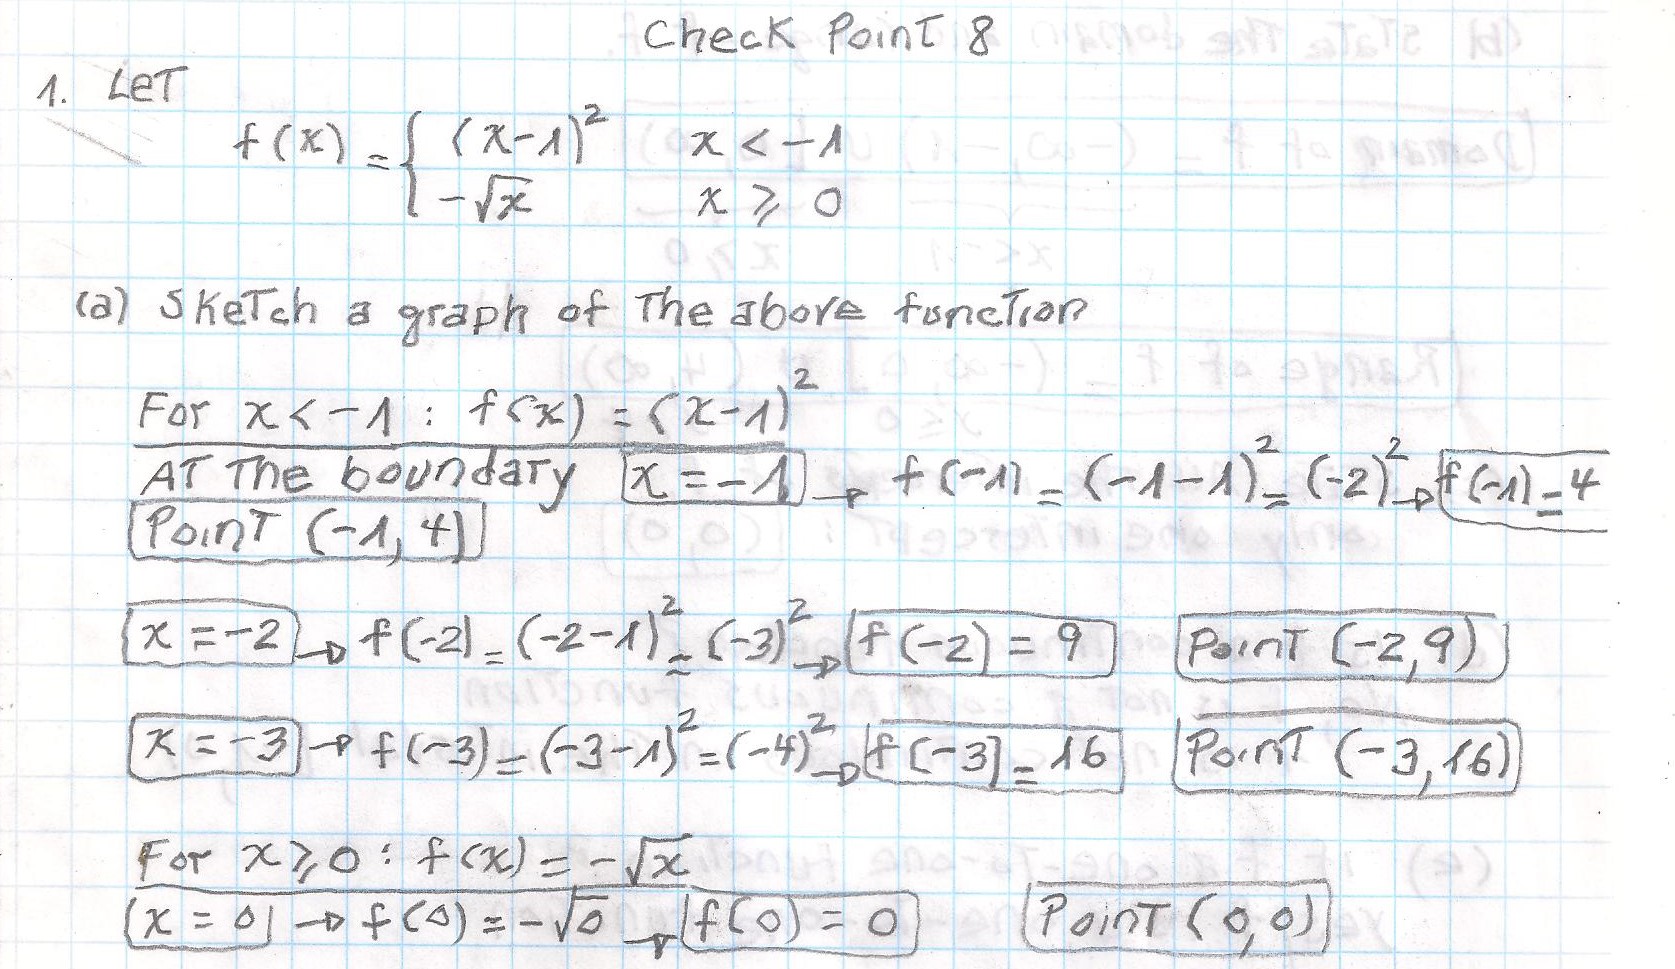 Check Point 8
1. Let
f(x) = { (x-1)² x < -1
-√x x ≥ 0
(a) Sketch a graph of the above function
For x < -1 : f(x) = (x-1)²
At the boundary x = -1 → f(-1) = (-1-1)² = (-2)² → f(-1) = 4
Point (-1, 4)
x = -2 → f(-2) = (-2-1)² = (-3)² → f(-2) = 9 Point (-2,9)
x = -3 → f(-3) = (-3-1)² = (-4)² → f(-3) = 16 Point (-3,16)
For x ≥ 0 : f(x) = -√x
x = 0 → f(0) = -√0 → f(0) = 0 Point (0,0)